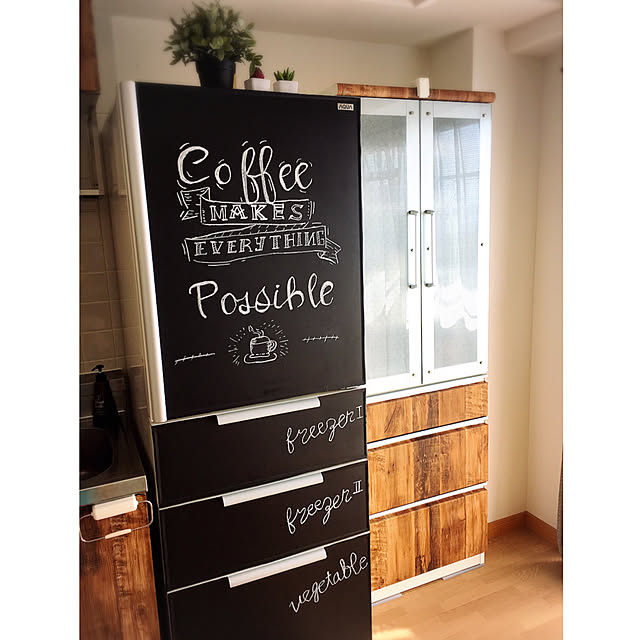 AQUA
Coffee
MAKES
EVERYTHING
Possible
freezer I
freezer II
vegetable